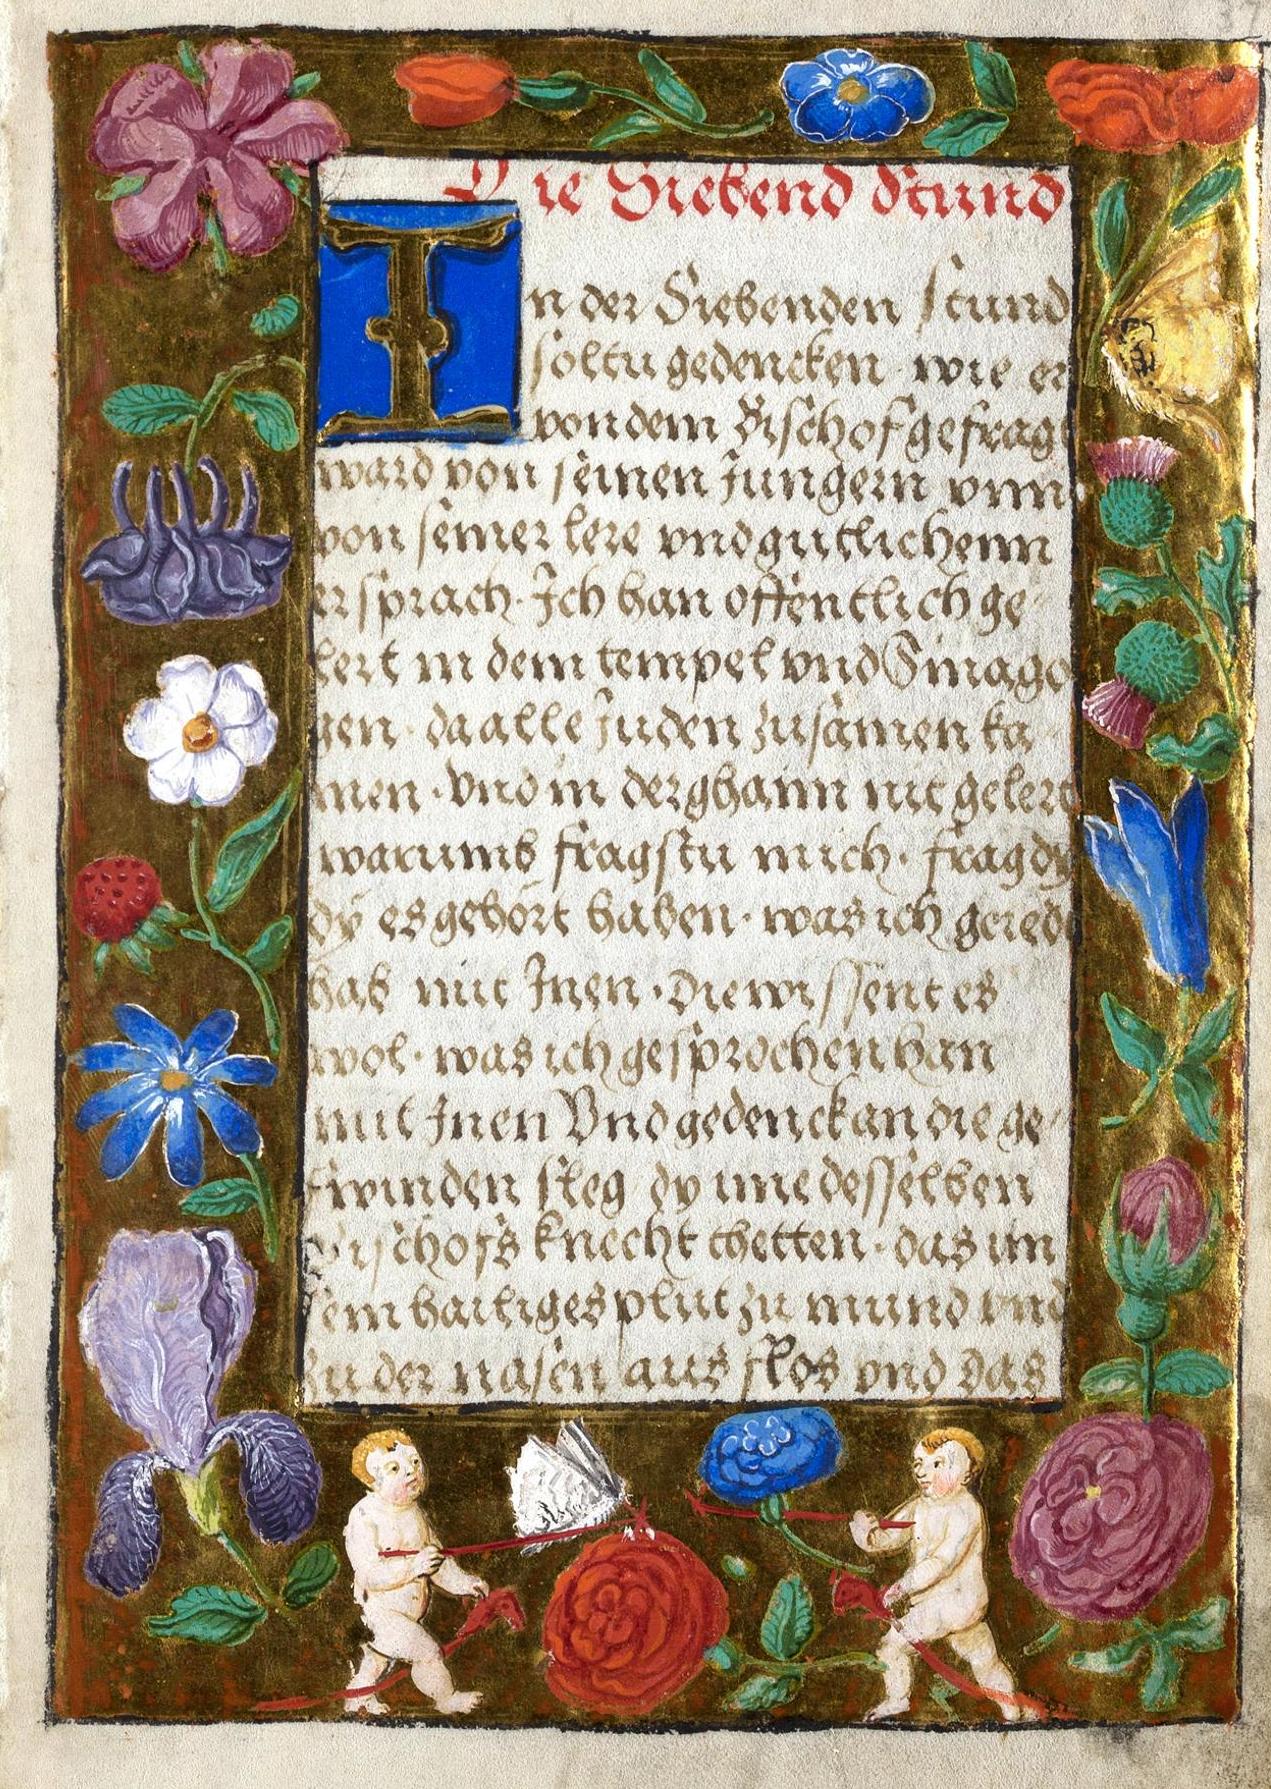 Die Siebend stund
In der Siebenden stund
soltu gedencken wie er
von dem Bischof gefragt
ward von seinen Jungern vnn
von seiner lere vnd gutlichenn
er sprach. Ich han offentlich ge-
lert in dem tempel vnd Sinago
gen. da alle Juden zusamen ka
men. vnd in der ghaim nit gelert
warumb fragstu mich. frag dy
dy es gehört haben. was ich gered
hab mit Inen. Die wissent es
wol. was ich gesprochen han
mit Inen Vnd gedenck an die ge-
swinden sleg dy ime desselben
Bischofs knecht thetten. das im
sein hailiges plut zu mund vnd
zu der nasen aus flos vnd das